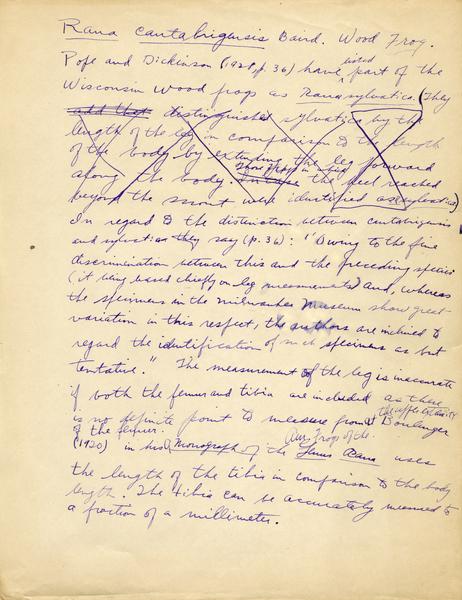 Rana cantabrigensis Baird. Wood Frog.
Pope and Dickinson (1928, p. 36) have listed part of the
Wisconsin wood frogs as Rana sylvatica. (They
add that distinguished sylvatica by the
length of the leg in comparison to the length
of the body by extending the leg forward
along the body. Those frogs in which the heel reached
beyond the snout were identified as sylvatica)
In regard to the distinction between cantabrigensis
and sylvatica they say (p. 36): "Owing to the fine
discrimination between this and the preceding species
(it being based chiefly on leg measurements) and, whereas
the specimens in the Milwaukee Museum show great
variation in this respect, the authors are inclined to
regard the identification of such specimens as but
tentative." The measurement of the leg is inaccurate
if both the femur and tibia are included as there
is no definite point to measure from at the upper extremity
of the femur. Boulenger
(1920) in his Monograph of the Am. frogs of the Genus Rana uses
the length of the tibia in comparison to the body
length. The tibia can be accurately measured to
a fraction of a millimeter.